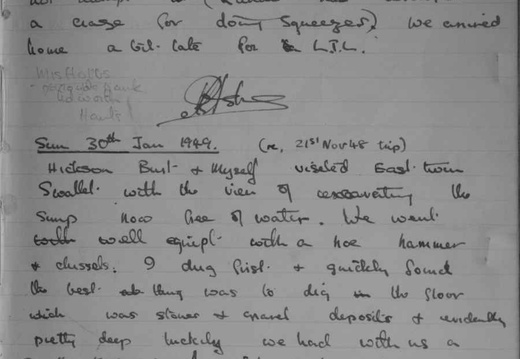 a craze (or doing squeezes) we arrived
home a bit late for L.I.L.
Sun 30th Jan 1949. (re, 21st Nov 48 trip)
Hickson Burt & Myself visited East twin
Swallet with the view of excavating the
Sump now free of water. We went
well equipt with a hoe hammer
& chissels. I dug first & quickly found
the best thing was to dig in the floor
which was stones & gravel deposits & evidently
pretty deep luckily we had with us a